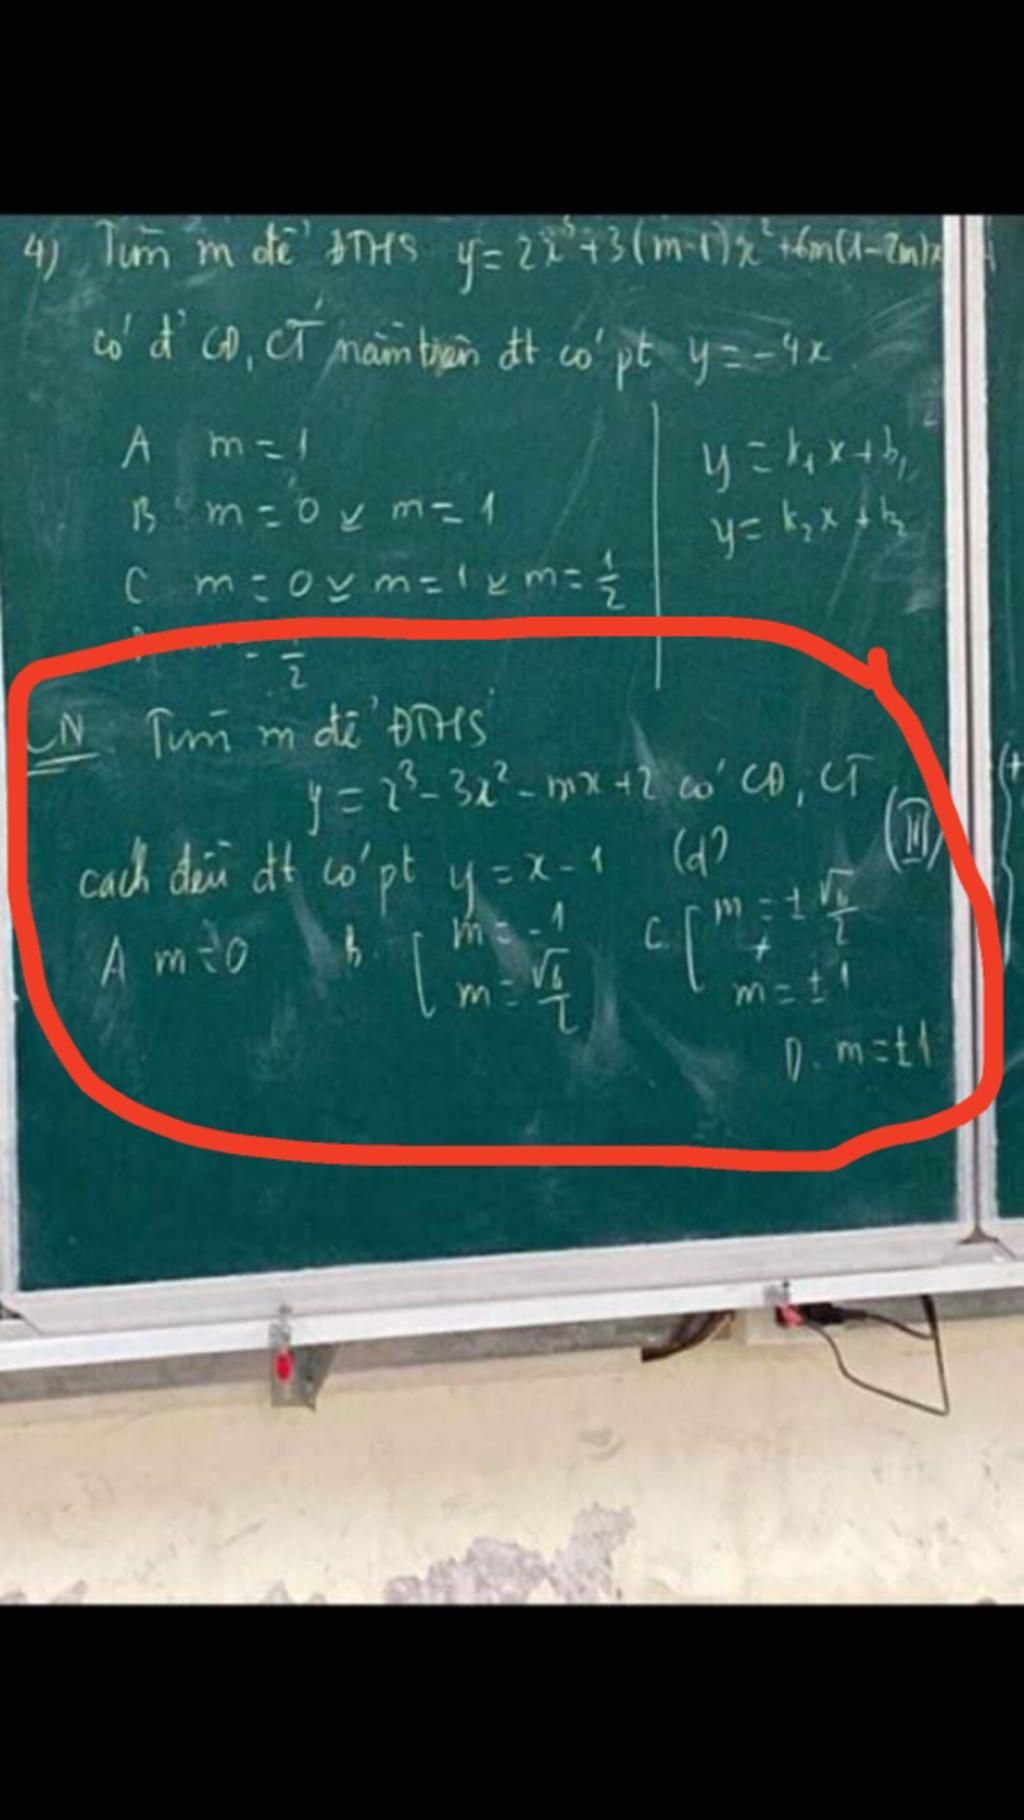 4) Tìm m để ĐTHS y = 2x³ + 3(m-1)x² + 6m(1-2m)x
có đ' CĐ, CT nằm trên đt có pt y = -4x
A m = 1
B m = 0 v m = 1
C m = 0 v m = 1 v m = 1/2
y = k₁x + b₁
y = k₂x + b₂
m = 1/2
CN Tìm m để ĐTHS
y = x³ - 3x² - mx + 2 có CĐ, CT
cách đều đt có pt y = x - 1 (d)
(II)
A m = 0
B. [ m = -1
m = √6/2
C. [ m = ± √6/2
m = ± 1
D. m = ±1